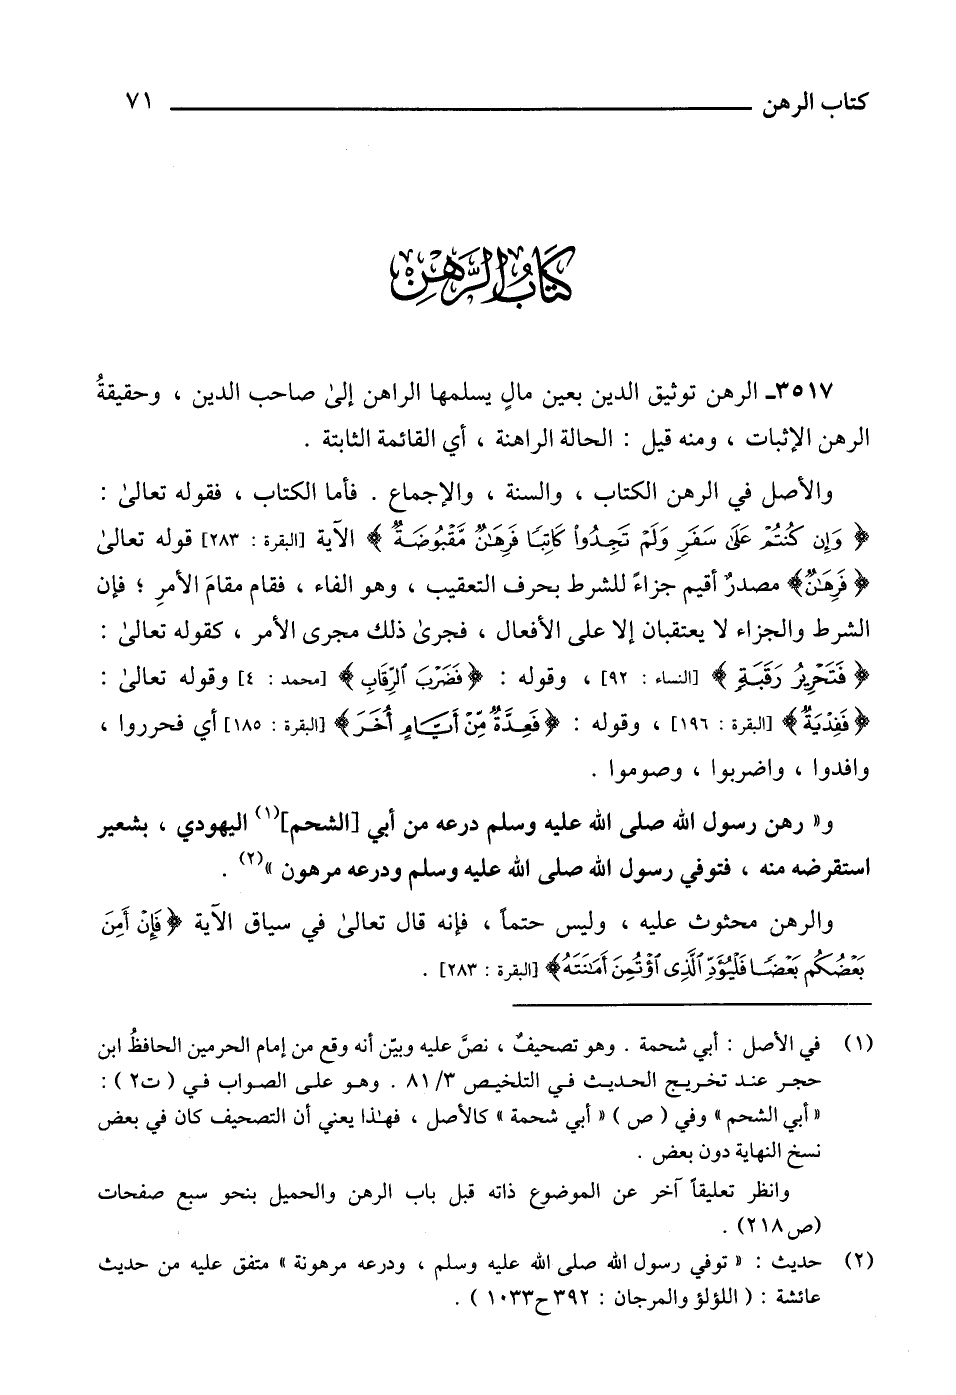 كتاب الرهن ٧١
كتاب الرهن
٣٥١٧ـ الرهن توثيق الدين بعين مالٍ يسلمها الراهن إلىٰ صاحب الدين ، وحقيقةُ
الرهن الإثبات ، ومنه قيل : الحالة الراهنة ، أي القائمة الثابتة .
والأصل في الرهن الكتاب ، والسنة ، والإجماع . فأما الكتاب ، فقوله تعالىٰ :
﴿ وَإِن كُنتُمْ عَلَىٰ سَفَرٍ وَلَمْ تَجِدُوا۟ كَاتِبًا فَرِهَٰنٌ مَّقْبُوضَةٌ ﴾ الآية [البقرة : ٢٨٣] قوله تعالىٰ
﴿ فَرِهَٰنٌ﴾ مصدرٌ أقيم جزاءً للشرط بحرف التعقيب ، وهو الفاء ، فقام مقامَ الأمرِ ؛ فإن
الشرط والجزاء لا يعتقبان إلا على الأفعال ، فجرىٰ ذلك مجرى الأمر ، كقوله تعالىٰ :
﴿ فَتَحْرِيرُ رَقَبَةٍ ﴾ [النساء : ٩٢] ، وقوله : ﴿ فَضَرْبَ ٱلرِّقَابِ ﴾ [محمد : ٤] وقوله تعالىٰ :
﴿ فَفِدْيَةٌ ﴾ [البقرة : ١٩٦] ، وقوله : ﴿ فَعِدَّةٌ مِّنْ أَيَّامٍ أُخَرَ ﴾ [البقرة : ١٨٥] أي فحرروا ،
وافدوا ، واضربوا ، وصوموا .
و« رهن رسول الله صلى الله عليه وسلم درعه من أبي [الشحم](١) اليهودي ، بشعير
استقرضه منه ، فتوفي رسول الله صلى الله عليه وسلم ودرعه مرهون »(٢) .
والرهن محثوث عليه ، وليس حتماً ، فإنه قال تعالىٰ في سياق الآية ﴿ فَإِنْ أَمِنَ
بَعْضُكُم بَعْضًا فَلْيُؤَدِّ ٱلَّذِى ٱؤْتُمِنَ أَمَٰنَتَهُ﴾ [البقرة : ٢٨٣] .
(١) في الأصل : أبي شحمة . وهو تصحيفٌ ، نصَّ عليه وبيّن أنه وقع من إمام الحرمين الحافظُ ابن
حجر عند تخريج الحديث في التلخيص ٣/ ٨١ . وهو على الصواب في ( ت٢ ) :
« أبي الشحم » وفي ( ص ) « أبي شحمة » كالأصل ، فهٰذا يعني أن التصحيف كان في بعض
نسخ النهاية دون بعض .
وانظر تعليقاً آخر عن الموضوع ذاته قبل باب الرهن والحميل بنحو سبع صفحات
(ص ٢١٨) .
(٢) حديث : « توفي رسول الله صلى الله عليه وسلم ، ودرعه مرهونة » متفق عليه من حديث
عائشة : ( اللؤلؤ والمرجان : ٣٩٢ ح ١٠٣٣ ) .